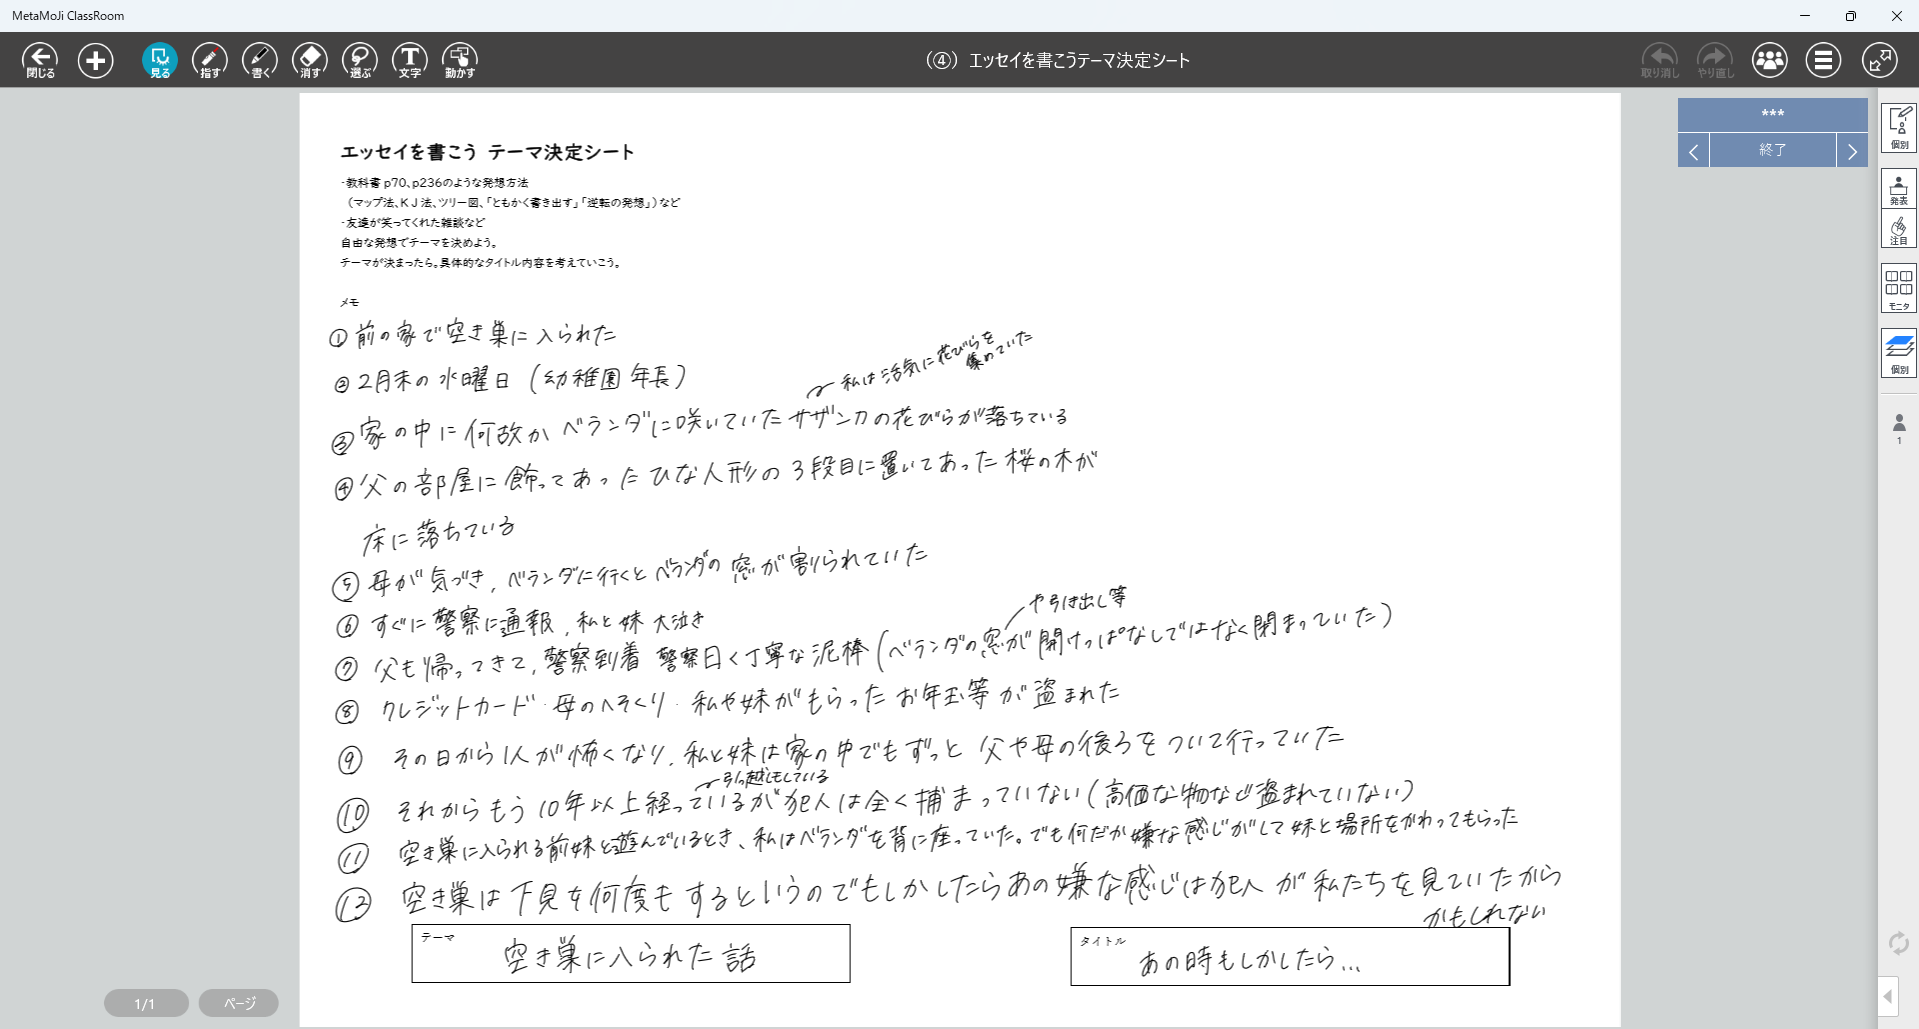 MetaMoJi ClassRoom
閉じる 見る 指す 書く 消す 選ぶ 文字 動かす
（④）エッセイを書こうテーマ決定シート
取り消し やり直し
***
終了
個別
発表
注目
モニタ
個別
1
エッセイを書こう テーマ決定シート
・教科書p70、p236のような発想方法
（マップ法、KJ法、ツリー図、「ともかく書き出す」「逆転の発想」）など
・友達が笑ってくれた雑談など
自由な発想でテーマを決めよう。
テーマが決まったら。具体的なタイトル内容を考えていこう。
メモ
①前の家で空き巣に入られた
②2月末の水曜日（幼稚園年長）
私は活気に花びらを
集めていた
③家の中に何故かベランダに咲いていたサザンカの花びらが落ちている
④父の部屋に飾ってあったひな人形の3段目に置いてあった桜の木が
床に落ちている
⑤母が気づき,ベランダに行くとベランダの窓が割られていた
⑥すぐに警察に通報,私と妹大泣き
や引き出し等
⑦父も帰ってきて,警察到着 警察曰く丁寧な泥棒（ベランダの窓が開けっぱなしではなく閉まっていた）
⑧クレジットカード・母のへそくり・私や妹がもらったお年玉等が盗まれた
⑨その日から1人が怖くなり,私と妹は家の中でもずっと父や母の後ろをついて行っていた
引っ越しもしている
⑩それからもう10年以上経っているが犯人は全く捕まっていない（高価な物など盗まれていない）
⑪空き巣に入られる前妹と遊んでいるとき、私はベランダを背に座っていた。でも何だか嫌な感じがして妹と場所をかわってもらった
⑫空き巣は下見を何度もするというのでもしかしたらあの嫌な感じは犯人が私たちを見ていたから
かもしれない
テーマ
空き巣に入られた話
タイトル
あの時もしかしたら...
1/1 ページ